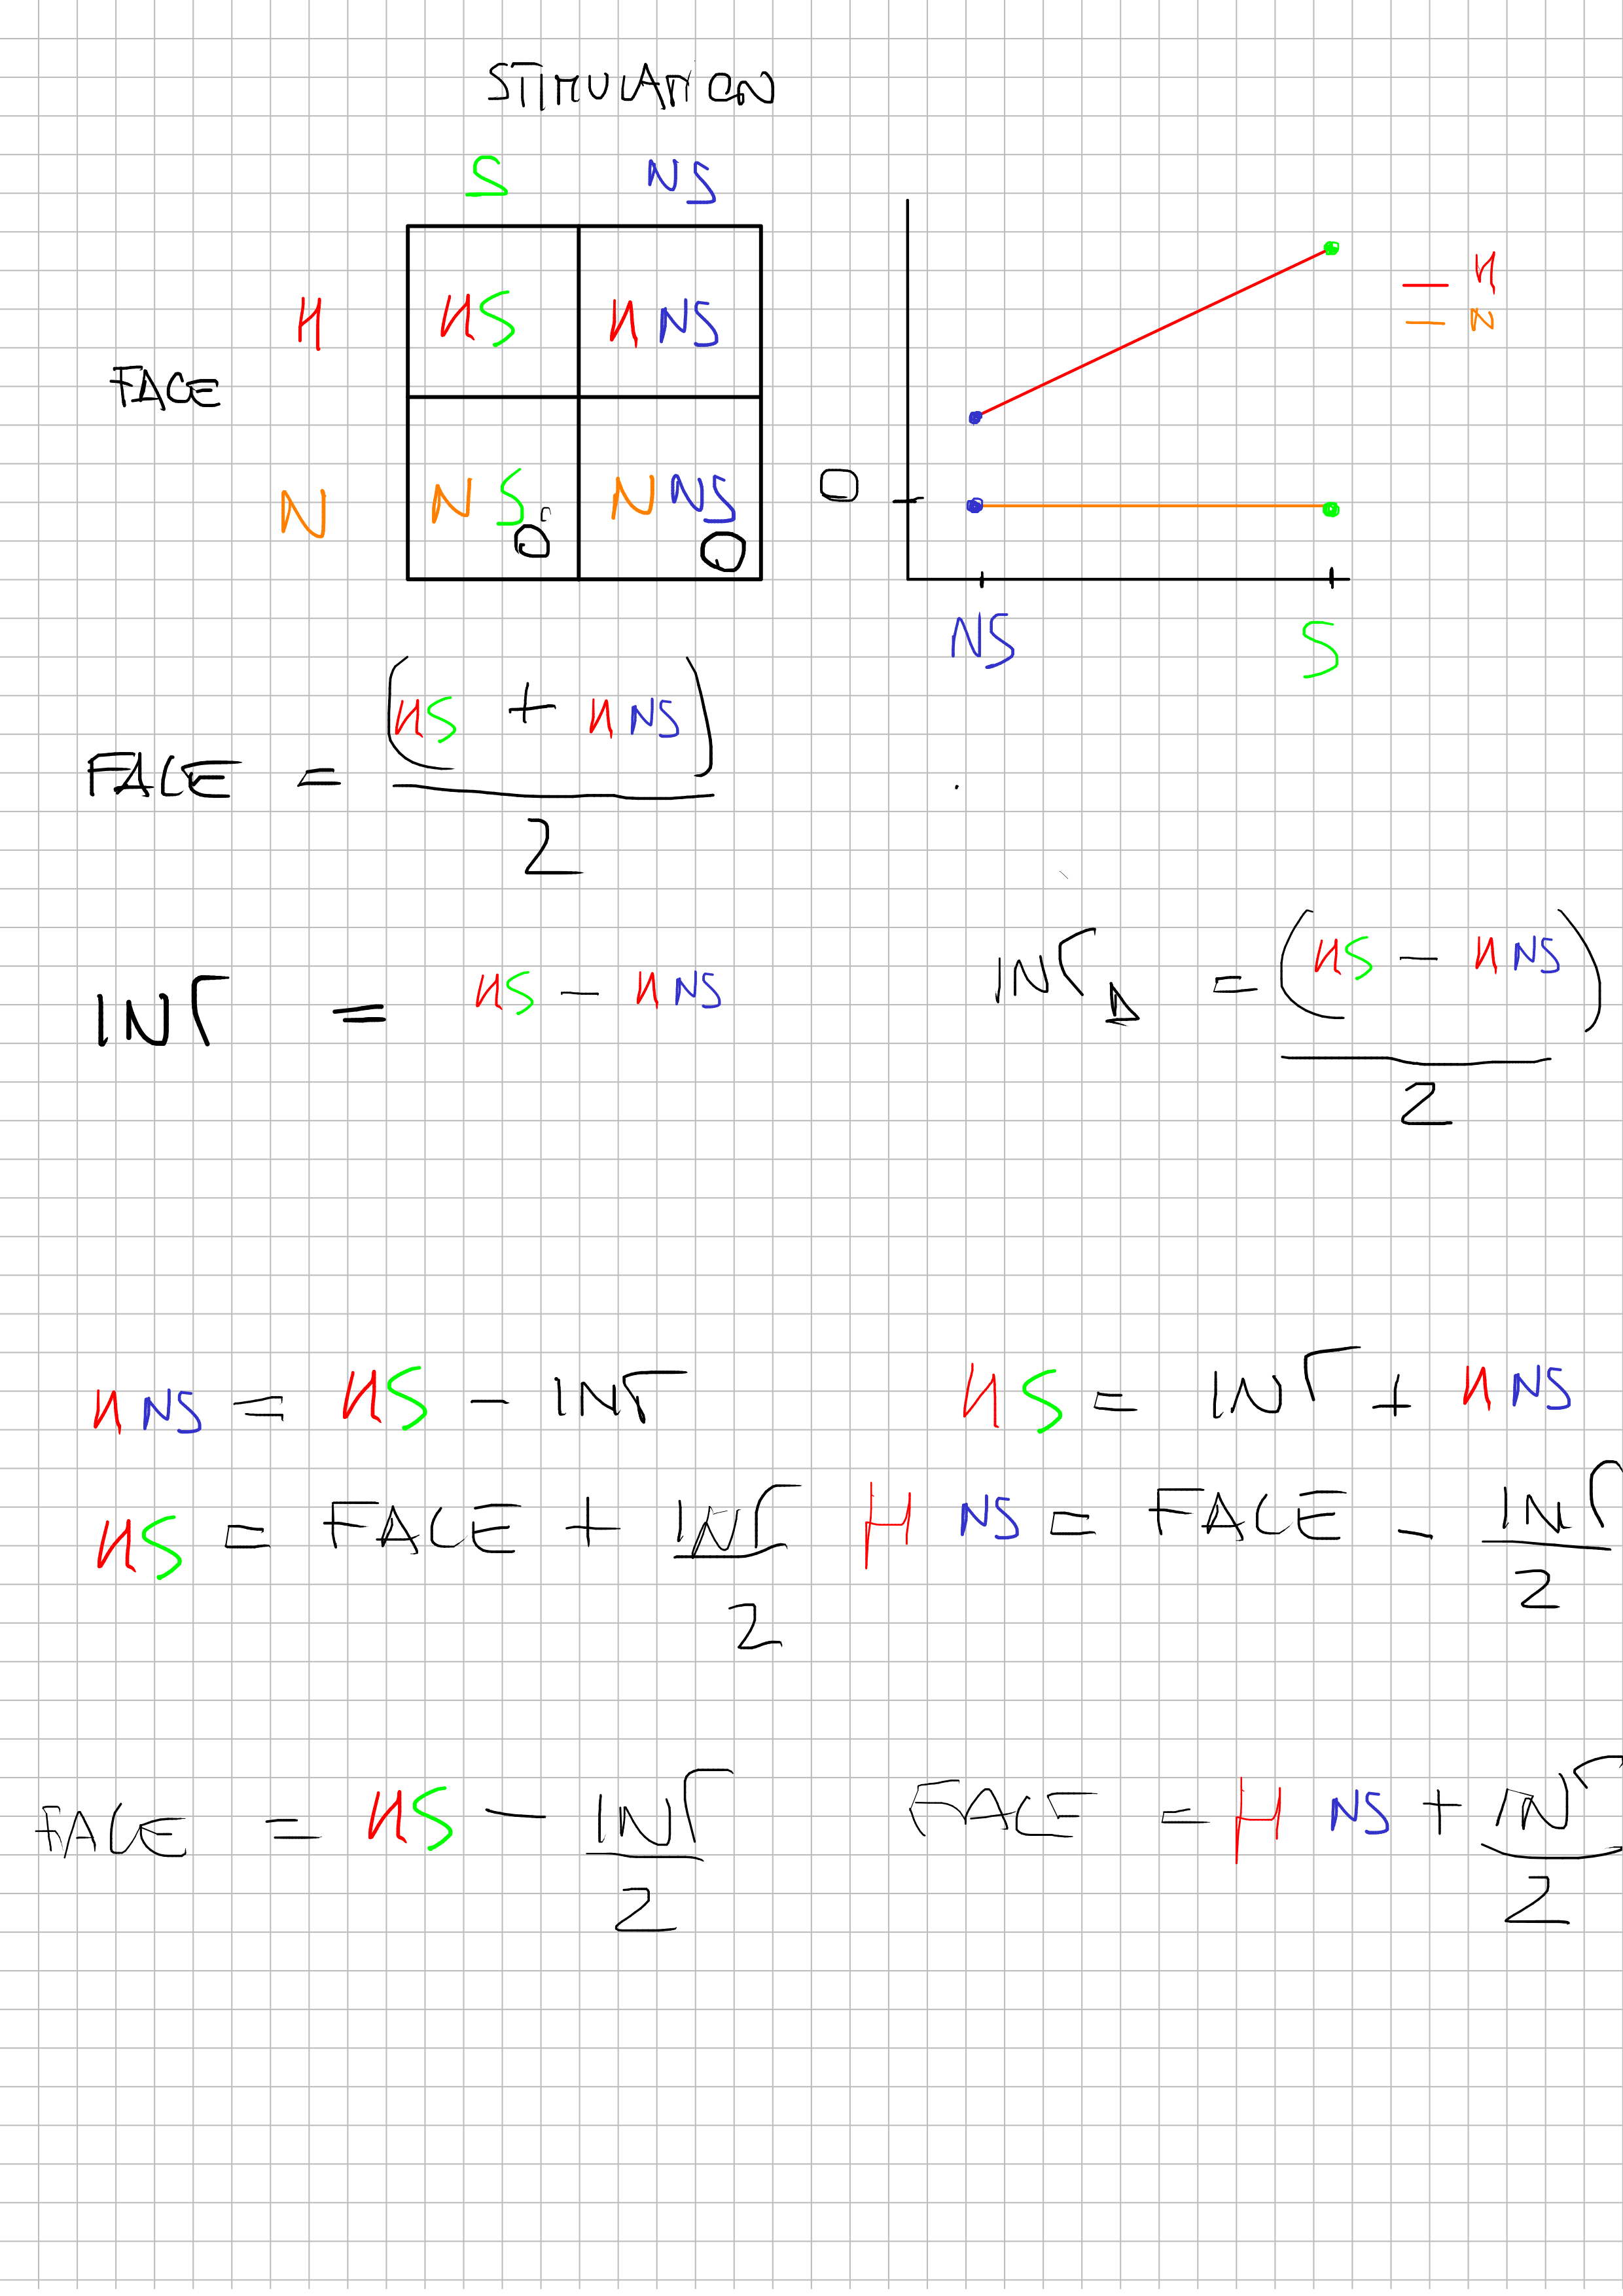 STIMULATION
S NS
FACE
H HS HNS
N NS NNS
0 0
0
H
N
NS S
FACE = (HS + HNS) / 2
INT = HS - HNS
INT Δ = (HS - HNS) / 2
HNS = HS - INT
HS = INT + HNS
HS = FACE + INT / 2
HNS = FACE - INT / 2
FACE = HS - INT / 2
FACE = HNS + INT / 2